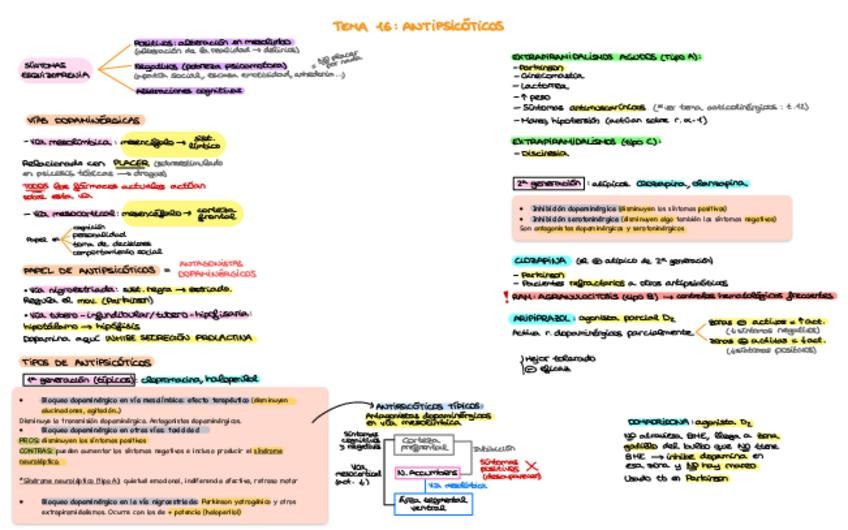 TEMA 16: ANTIPSICÓTICOS
SÍNTOMAS
ESQUIZOFRENIA
Positivos: alteración en mesolímbico
(alteración de la realidad → delirios)
Negativos (pobreza psicomotora)
= NO placer
por nada
(apatía social, escasa emotividad, anhedonia...)
Alteraciones cognitivas
VÍAS DOPAMINÉRGICAS
- Vía mesolímbica: mesencéfalo → sist.
límbico
Relacionada con PLACER (sobreestimulado
en psicosis tóxicas → drogas)
TODOS los fármacos actuales actúan
sobre esta vía
- Vía mesocortical: mesencéfalo → corteza
frontal
Papel en
cognición
personalidad
toma de decisiones
comportamiento social
PAPEL DE ANTIPSICÓTICOS = ANTAGONISTAS
DOPAMINÉRGICOS
• Vía nigroestriada: sust. negra → estriado.
Regula el mov. (Parkinson)
• Vía tubero-infundibular/tubero-hipofisaria:
hipotálamo → hipófisis
Dopamina aquí INHIBE SECRECIÓN PROLACTINA
TIPOS DE ANTIPSICÓTICOS
1ª generación (típicos): clorpromacina, haloperidol
• Bloqueo dopaminérgico en vía mesolímbica: efecto terapéutico (disminuyen
alucinaciones, agitación..)
Disminuye la transmisión dopaminérgica. Antagonistas dopaminérgicos.
• Bloqueo dopaminérgico en otras vías: toxicidad
PROS: disminuyen los síntomas positivos
CONTRAS: pueden aumentar los síntomas negativos e incluso producir el síndrome
neuroléptico.
*Síndrome neuroléptico (tipo A): quietud emocional, indiferencia afectiva, retraso motor
• Bloqueo dopaminérgico en la vía nigroestriada: Parkinson yatrogénico y otros
extrapiramidalismos. Ocurre con los de + potencia (haloperidol)
ANTIPSICÓTICOS TÍPICOS:
Antagonistas dopaminérgicos
en vía mesolímbica
Síntomas
cognitivos
y negativos
Corteza
prefrontal
Inhibición
N. Accumbens
Síntomas
positivos
(desaparecen)
Vía
mesocortical
(act. ↓)
Vía mesolímbica
Área tegmental
ventral
EXTRAPIRAMIDALISMOS AGUDOS (Tipo A):
- Parkinson
- Ginecomastia
- Lactorrea
- ↑ peso
- Síntomas antimuscarínicos (*ver tema anticolinérgicos: t.12)
- Mareo, hipotensión (actúan sobre r. α-1)
EXTRAPIRAMIDALISMOS (tipo C):
- Discinesia
2ª generación: atípicos clozapina, olanzapina
• Inhibición dopaminérgica (disminuyen los síntomas positivos)
• Inhibición serotoninérgica (disminuyen algo también los síntomas negativos)
Son antagonistas dopaminérgicos y serotoninérgicos
CLOZAPINA (el ⊕ atípico de 2ª generación)
- Parkinson
- Pacientes refractarios a otros antipsicóticos
! RAM: AGRANULOCITOSIS (tipo B) → controles hematológicos frecuentes
ARIPIPRAZOL: agonista parcial D2
Activa r. dopaminérgicos parcialmente
zonas ⊖ activas = ↑ act.
(↓ síntomas negativos)
zonas ⊕ activas = ↓ act.
(↓ síntomas positivos)
Mejor tolerado
⊖ eficaz
DOMPERIDONA: D2
NO atraviesa BHE, llega a zona
gatillo del bulbo que NO tiene
BHE → inhibe dopamina en
esa zona y NO hay mareo
Usado tb en Parkinson